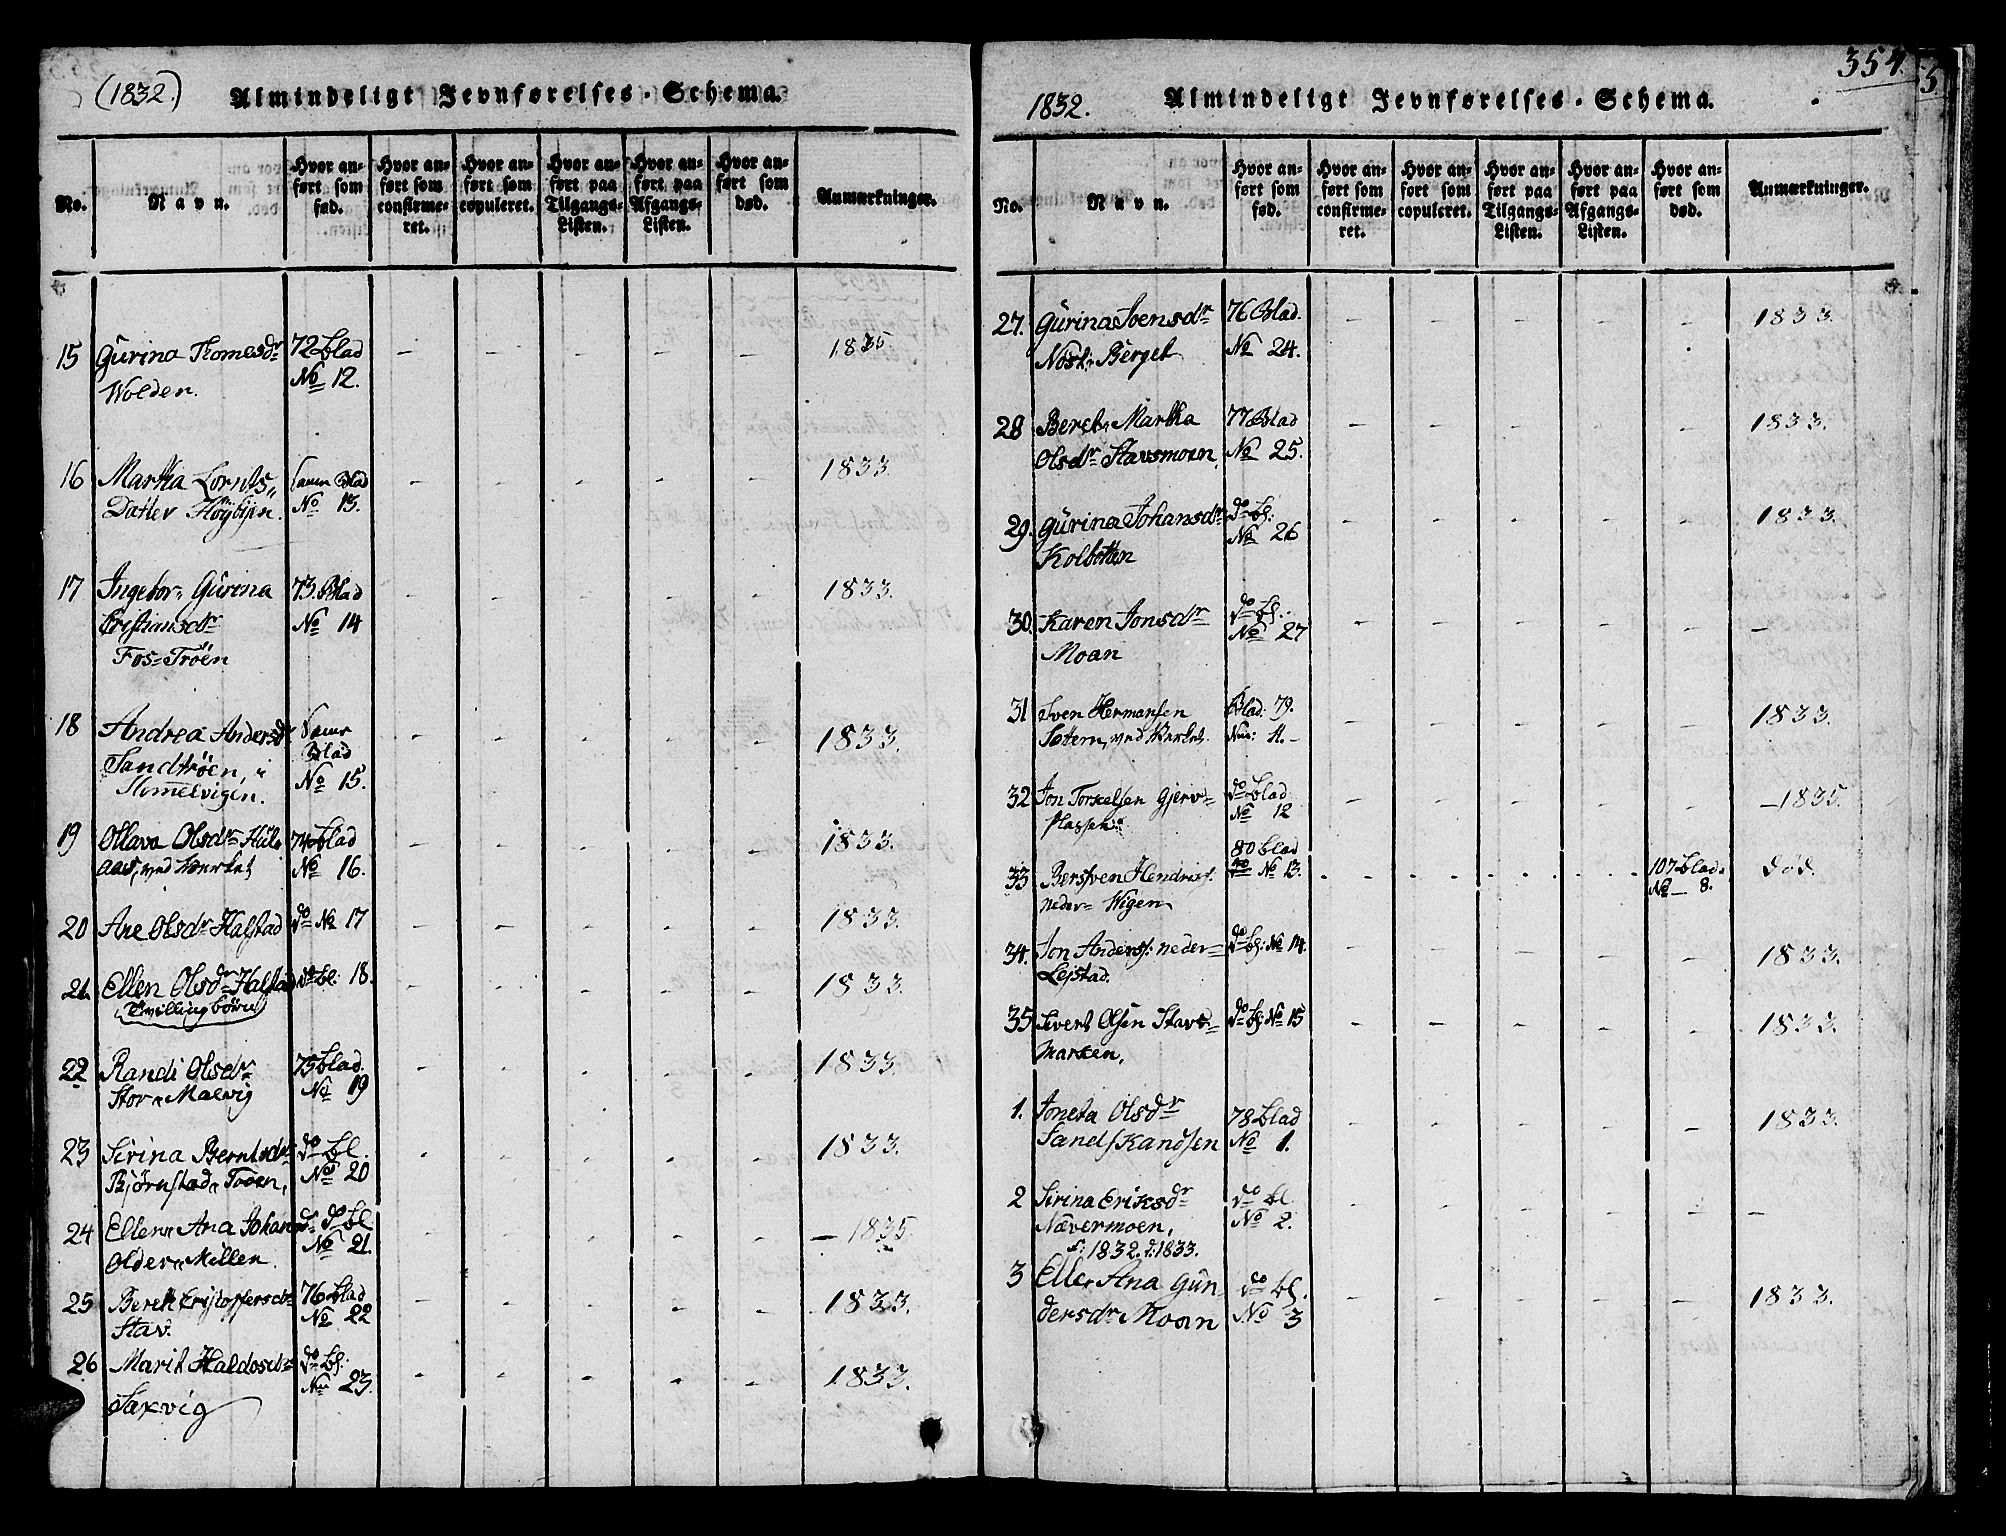 (1832.) Almindeligt Jevnførelses-Schema.
No. Navn. Hvor anført som fød. Hvor anført som confirmeret. Hvor anført som copuleret. Hvor anført paa Tilgangs-Listen. Hvor anført paa Afgangs-Listen. Hvor anført som død. Anmærkninger.
15 Gurina Thomesdr 72 blad - - - - - 1835
Wolden. No 12.
16 Martha Lornts„ samr Blad - - - - - 1833
Datter Høybÿen. No 13.
17 Ingebor„ Gurina 73. Blad - - - - - 1833.
Cristiansdr No 14
Fos=Trøen
18 Andrea Andersdr Samr - - - - - 1833.
Sandtrøen, i Blad
Hommelvigen. No 15.
19 Ollava Olsdr 74 blad - - - - - 1833.
aas, ved Værket No 16.
20 Ane Olsdr Halstad do No 17 - - - - - 1833.
21. Ellen Olsdr Halstad do bl: 18. - - - - - 1833.
Tvillingbørn
22 Randi Olsdr 75 blad. - - - - - 1833.
Stor„ Malvig No 19
23 Sirina Berntsdr do bl. - - - - - 1833.
Bjørnstad„ Trøen, No 20
24 Ellen„ Ana Johansdr do bl - - - - - 1835.
Older„ Millen. No 21.
25 Beret Cristoffersdr 76 blad - - - - - 1833.
Stav. No 22
26 Marit Haldosdr do bl: - - - - - 1833.
Saxvig No 23.
354.
1832. Almindeligt Jevnførelses-Schema.
No. Navn. Hvor anført som fød. Hvor anført som confirmeret. Hvor anført som copuleret. Hvor anført paa Tilgangs-Listen. Hvor anført paa Afgangs-Listen. Hvor anført som død. Anmærkninger.
27. Gurina Joensdr 76 Blad. - - - - - 1833.
Nost„ Berget No 24.
28 Beret„ Martha 77 Blad - - - - - 1833.
Olsdr Stavsmoen. No 25.
29. Gurina Johansdr do bl: - - - - - 1833.
Kolbotten No 26
30. Karen Jonsdr do bl: - - - - - -
Moan No 27
31 Sven Hermansen Blad. 79. - - - - - 1833.
Sætern, ved Verket. Num: 11.-
32 Jon Torkelsen Gjerv= do blad - - - - - 1835.
Plassen No 12
33 Berstven Hendrics. 80 blad No 13. - - - - 107 blad. død.
neder= Wigen No 8.
34. Jon Anders: neder= do bl: No 14. - - - - - 1833.
Leistad.
35 Sivert Olsen Stavs= do bl: No 15 - - - - - 1833.
Marken,
1. Joneta Olsdr 78 blad - - - - - 1833.
SandsKandsen No 1.
2 Sirina Eriksdr do bl - - - - - -
Nævermoen, No 2.
f: 1832. d: 1833.
3 Elle„ Ana Gun„ do bl. - - - - - 1833.
dersdr Moan No 3